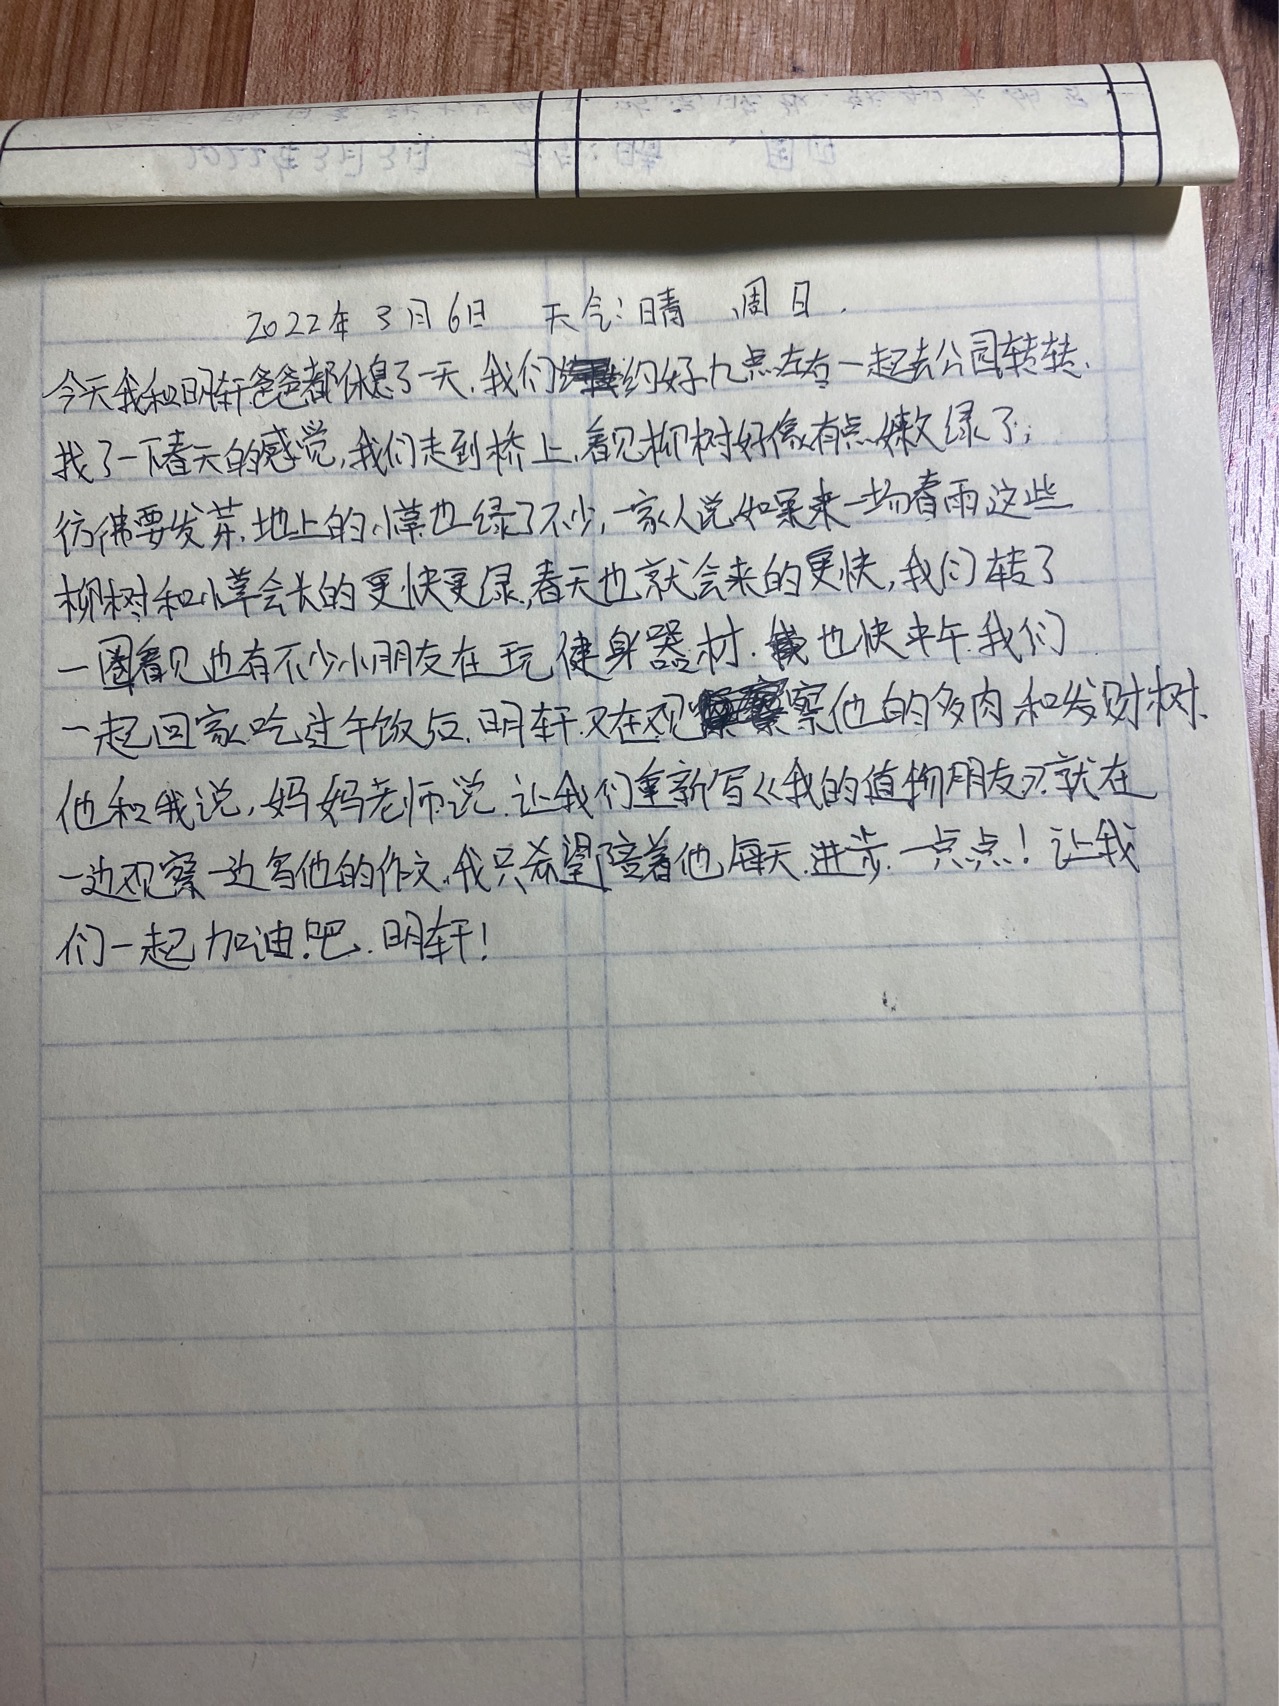 2022年3月6日 天气:晴 周日.
今天我和明轩爸爸都休息了一天.我们约好九点左右一起去公园转转.
找了一下春天的感觉,我们走到桥上.看见柳树好像有点嫩绿了;
彷佛要发芽.地上的小草也绿了不少,一家人说如果来一场春雨这些
柳树和小草会长的更快更绿,春天也就会来的更快,我们转了
一圈看见也有不少小朋友在玩健身器材.也快中午.我们
一起回家.吃过午饭后.明轩.又在观察他的多肉和发财树.
他和我说,妈妈老师说.让我们重新写《我的值物朋友》.就在
一边观察一边写他的作文.我只希望陪着他每天.进步.一点点!让我
们一起加油.吧.明轩!
2022年3月3日 天气:晴 周四